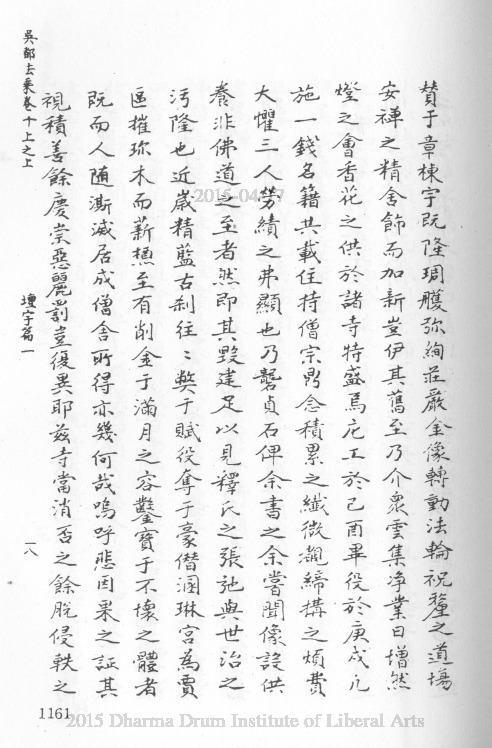 贊于章棟宇既隆琱雘弥絢莊嚴金像轉動法輪祝釐之道場
安禅之精舍飾而加新豈伊其舊至乃介衆雲集净業日增然
燈之會香花之供於諸寺特盛焉庀工於己酉畢役於庚戌凡
施一錢名籍共載住持僧宗鼎念積累之纖微覩締構之煩費
大懼三人勞績之弗顯也乃礱貞石俾余書之余嘗聞像設供
養非佛道之至者然即其毀建足以見釋氏之張弛與世治之
污隆也近嵗精藍古刹往〻弊于賦役奪于豪僭溷琳宮為賈
區摧珎木而薪槱至有削金于滿月之容鑿寶于不壞之體者
既而人随澌滅居成僧舍所得亦幾何哉嗚呼悲因果之証其
視積善餘慶崇惡麗罰豈復異耶兹寺當消否之餘脫侵軼之
吳都法乘卷十上之上
壇宇篇一
一八
1161
2015-04-17
2015 Dharma Drum Institute of Liberal Arts